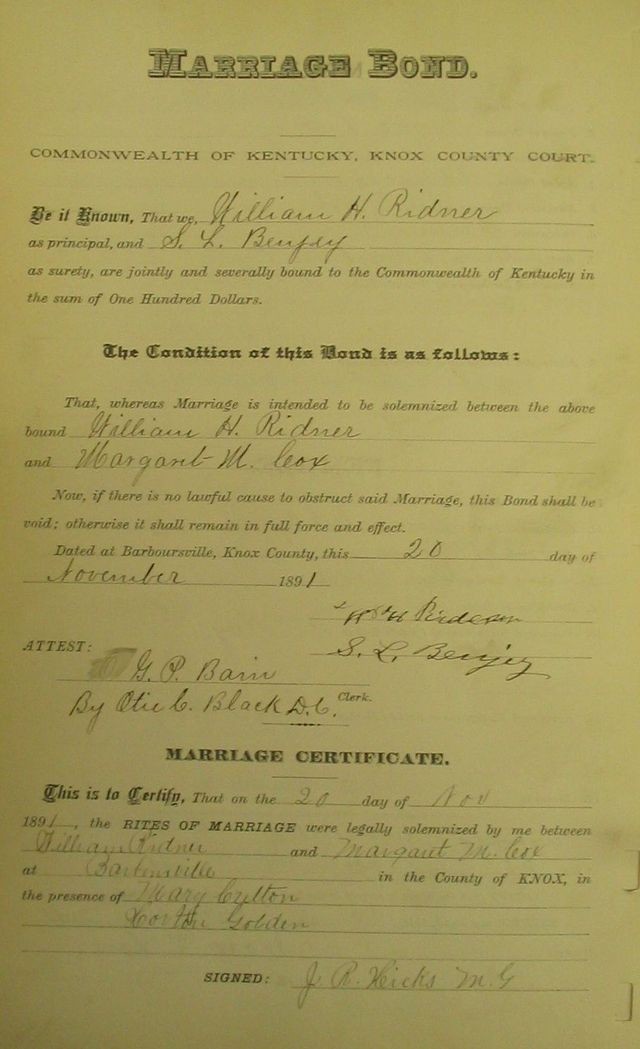 MARRIAGE BOND.
COMMONWEALTH OF KENTUCKY, KNOX COUNTY COURT.
Be it Known, That we, William H. Ridner
as principal, and S. L. Benjey
as surety, are jointly and severally bound to the Commonwealth of Kentucky in
the sum of One Hundred Dollars.
The Condition of this Bond is as follows:
That, whereas Marriage is intended to be solemnized between the above
bound William H. Ridner
and Margaret M. Cox
Now, if there is no lawful cause to obstruct said Marriage, this Bond shall be
void; otherwise it shall remain in full force and effect.
Dated at Barboursville, Knox County, this 20 day of
November 1891
Wm H
S. L. Benjey
ATTEST:
G. P. Bain
By Otie C. Black D.C. Clerk.
MARRIAGE CERTIFICATE.
This is to Certify, That on the 20 day of Nov
1891, the RITES OF MARRIAGE were legally solemnized by me between
William Ridner and Margaret M. Cox
at in the County of KNOX, in
the presence of Mary
Golden
SIGNED: J. R. Hicks M. G